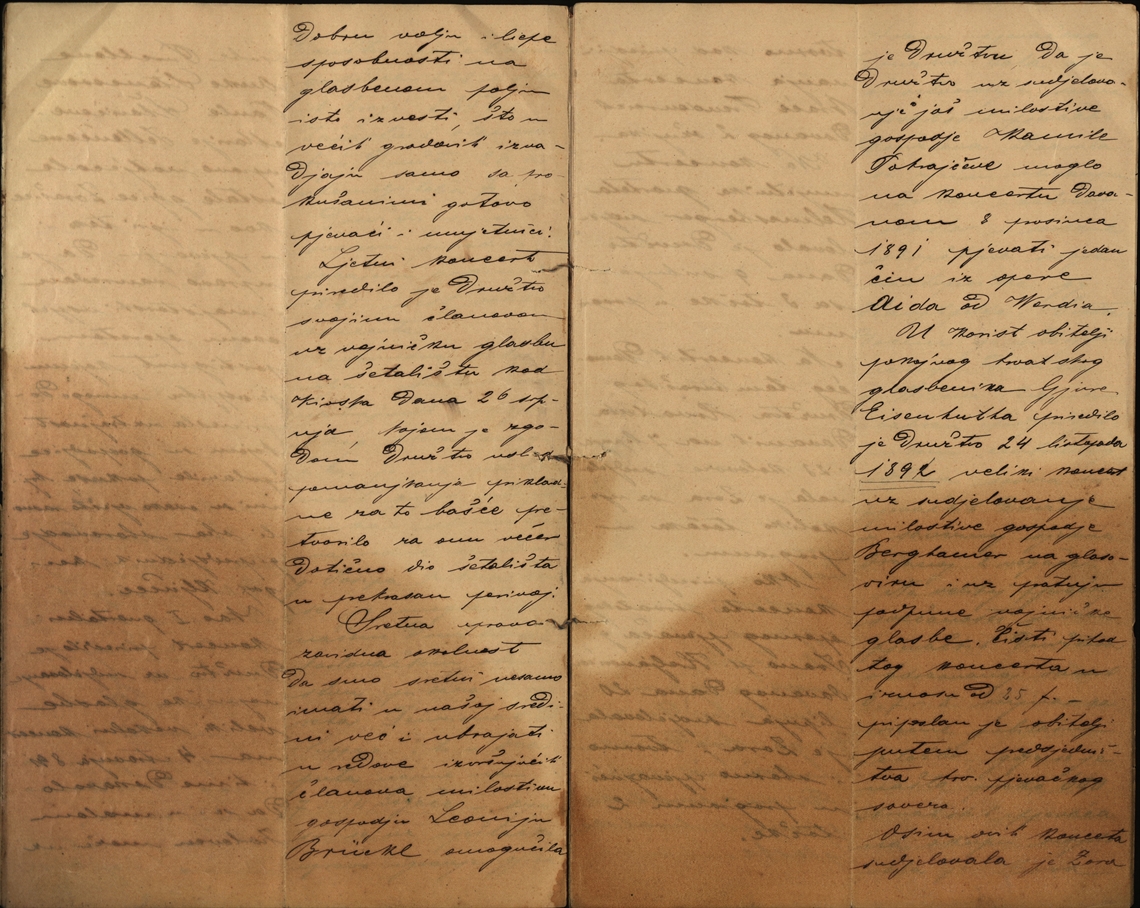 Dobru volju i liepe
sposobnosti na
glasbenom polju
isto izvesti, što u
većih gradovih izva-
djaju samo sa pro-
kušanimi gotovo
pjevači i umjetnici.
Ljetni koncert
priredilo je Družtvo
svojim članovom
uz vojničku glasbu
na šetalištu kod
kioska dana 26 srp-
nja kojom je zgo-
dom Družtvo usled
pomanjkanja priklad-
ne za to bašće pre-
tvorilo za onu večer
dotično dio šetališta
u prekrasan perivoj.
Sretna upravo
zavidna okolnost
da smo sretni nesamo
imati u našoj sredi-
ni već i ubrajati
u redove izvršujućih
članova milostivu
gospodju Leoniju
Brückl omogućila
je Družtvu da je
Družtvo uz sudjelova-
nje još milostive
gospodje Kamile
moglo
na koncertu dava-
nom 8 prosinca
1891 pjevati jedan
čin iz opere
Aida od Werdia.
U korist obitelji
pokojnog hrvatskog
glasbenika Gjure
Eisenhutha priredilo
je Družtvo 24 listopada
1892 veliki koncert
uz sudjelovanje
milostive gospodje
Berghamer na glaso-
viru i uz pratnju
podpune vojničke
glasbe. Čisti prihod
tog koncerta u
iznosu od 35 f. -
pripslan je obitelji
putem predsjedniš-
tva hrv. pjevačkog
saveza.
Osim ovih koncerta
sudjelovala je Zora